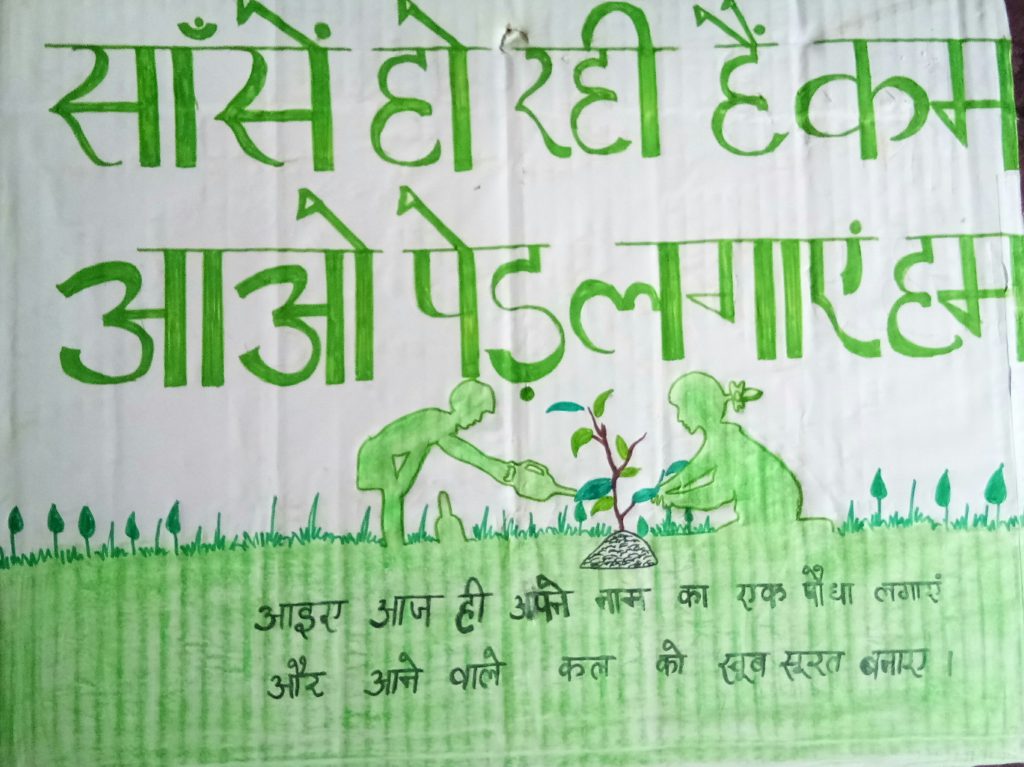 साँसें हो रही हैं कम
आओ पेड़ लगाएं हम
आइए आज ही अपने नाम का एक पौधा लगाएं
और आने वाले कल को खूब सूरत बनाए ।